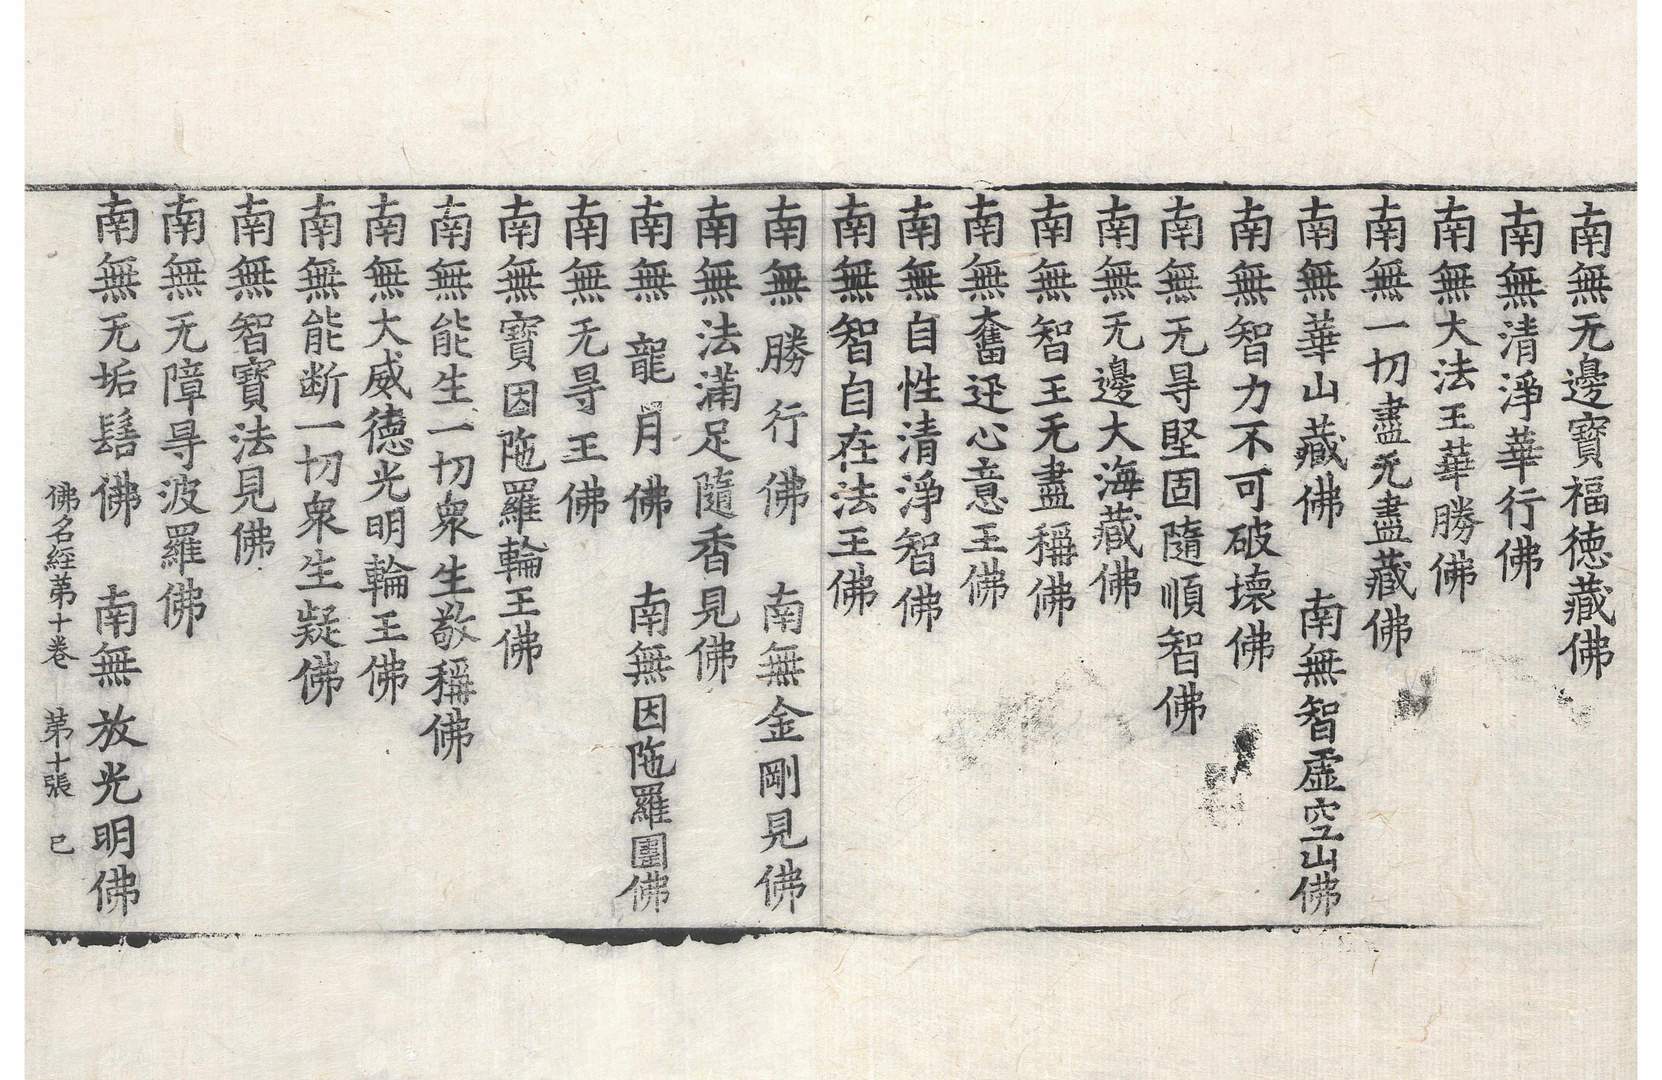 南無无邊寶福徳藏佛
南無清淨華行佛
南無大法王華勝佛
南無一切盡无盡藏佛
南無華山藏佛　南無智虛空山佛
南無智力不可破壞佛
南無无㝵堅固隨順智佛
南無无邊大海藏佛
南無智王无盡稱佛
南無奮迅心意王佛
南無自性清淨智佛
南無智自在法王佛
南無勝行佛　南無金剛見佛
南無法滿足隨香見佛
南無龍月佛　南無因陁羅圍佛
南無无㝵王佛
南無寶因陁羅輪王佛
南無能生一切衆生敬稱佛
南無大威德光明輪王佛
南無能断一切衆生疑佛
南無智寶法見佛
南無无障㝵波羅佛
南無无垢髻佛　南無放光明佛
佛名經第十卷　第十張　已